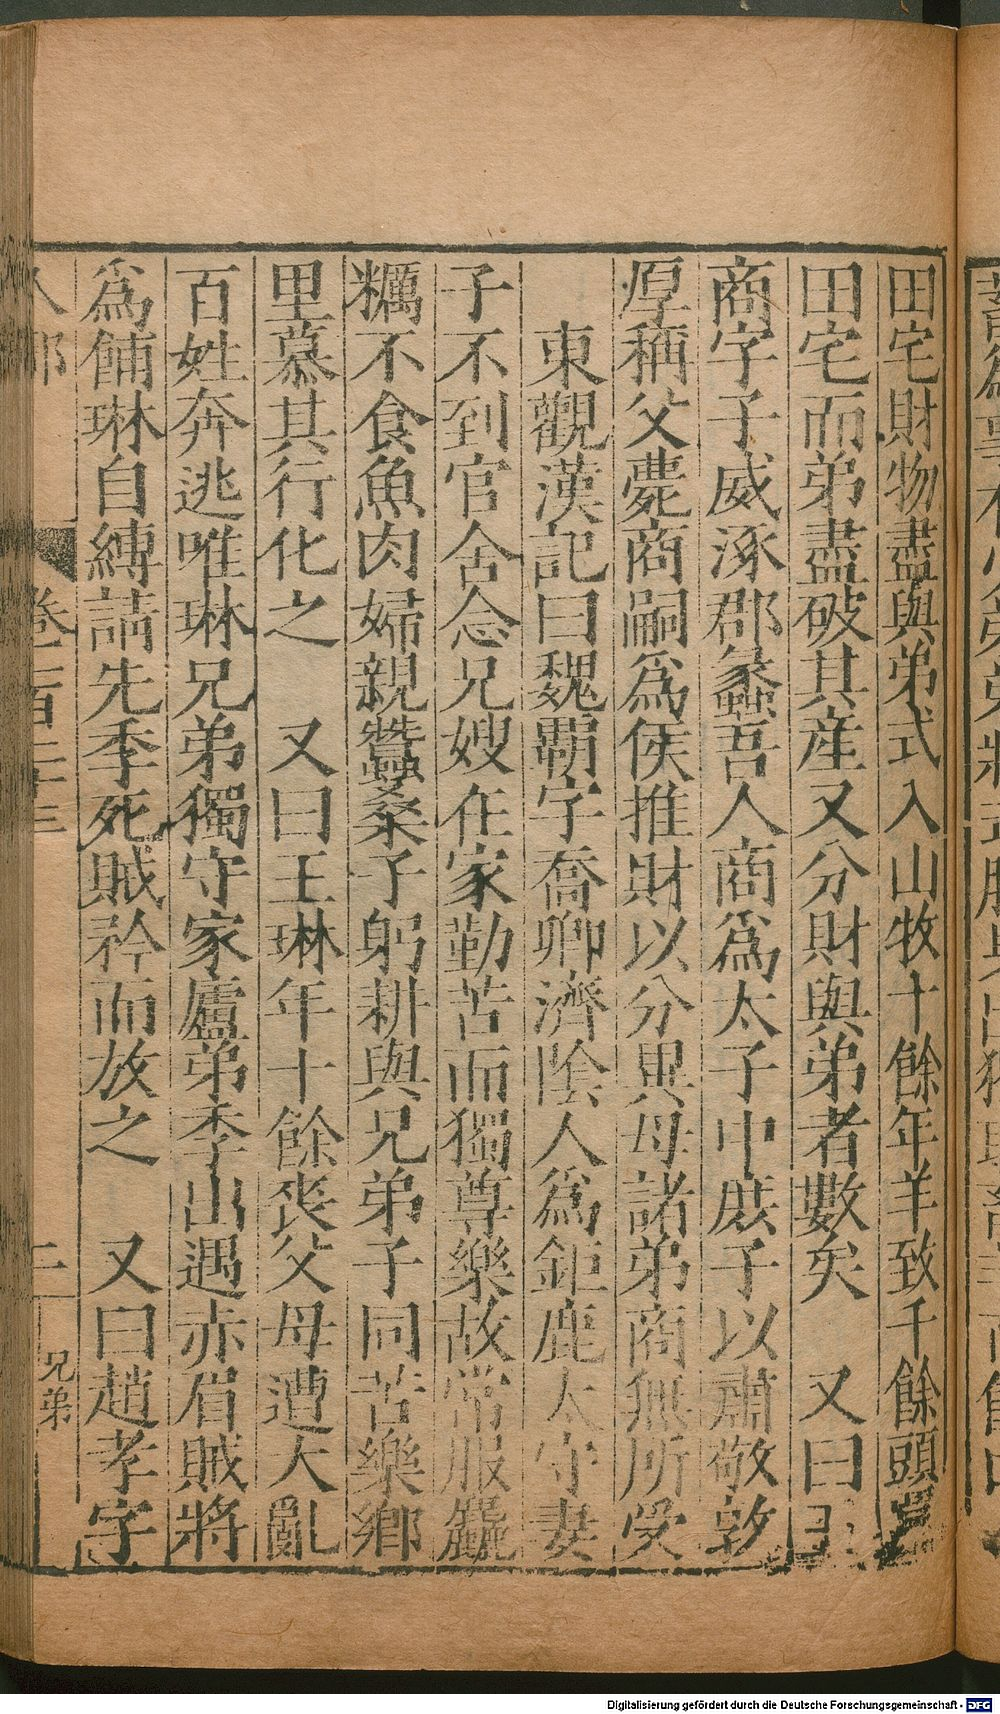 田宅財物盡與弟式入山牧十餘年羊致千餘頭買
田宅而弟盡破其產又分財與弟者數矣　又曰王
商字子威涿郡蠡吾人商爲太子中庶子以肅敬敦
厚稱父薨商嗣爲侯推財以分異母諸弟商無所受
東觀漢記曰魏霸字喬卿濟陰人爲鉅鹿太守妻
子不到官舍念兄嫂在家勤苦而獨尊樂故常服麤
糲不食魚肉婦親蠶桑子躬耕與兄弟子同苦樂鄉
里慕其行化之　又曰王琳年十餘喪父母遭大亂
百姓奔逃唯琳兄弟獨守家廬弟季出遇赤眉賊將
爲餔琳自縛請先季死賊矜而放之　又曰趙孝字
人部
卷一百二十三
三
兄弟
Digitalisierung gefördert durch die Deutsche Forschungsgemeinschaft - DFG